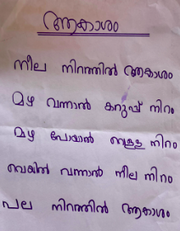 ആകാശം
നീല നിറത്തിൽ ആകാശം
മഴ വന്നാൽ കറുപ്പ് നിറം
മഴ പോയാൽ വെള്ള നിറം
വെയിൽ വന്നാൽ നീല നിറം
പല നിറത്തിൽ ആകാശം